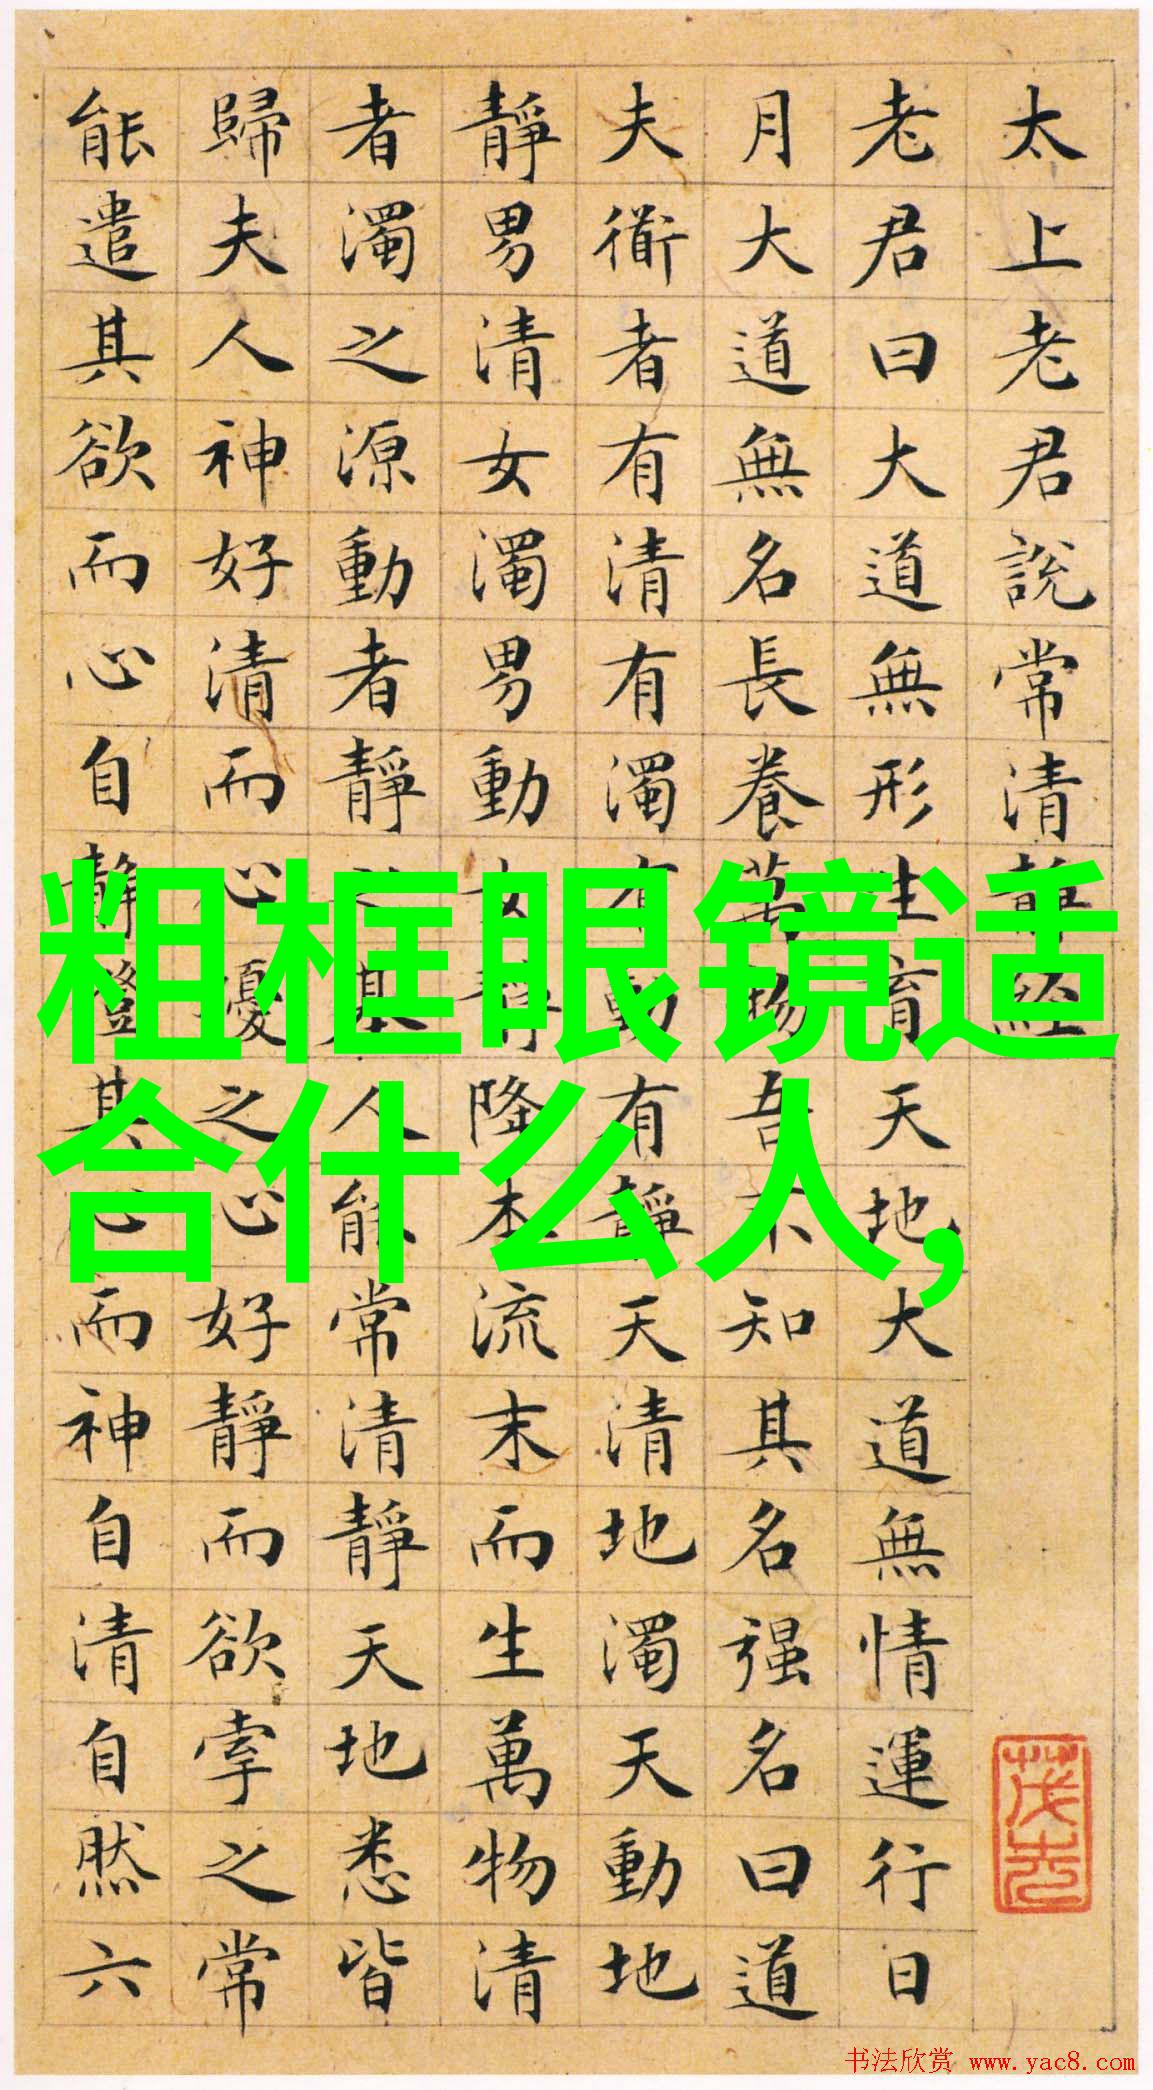 太上老君說常清靜經
老君曰大道無形生育天地大道無情運行日
月大道無名長養萬物吾不知其名强名曰道
夫衜者有清有濁有動有靜天清地濁天動地
靜男清女濁男動女靜降本流末而生萬物清
者濁之源動者靜之基人能常清靜天地悉皆
歸夫人神好清而心擾之心好靜而欲牽之常
能遣其欲而心自靜澄其心而神自清自然六
粗框眼镜适
合什么人,
书法欣赏 www.yac8.com